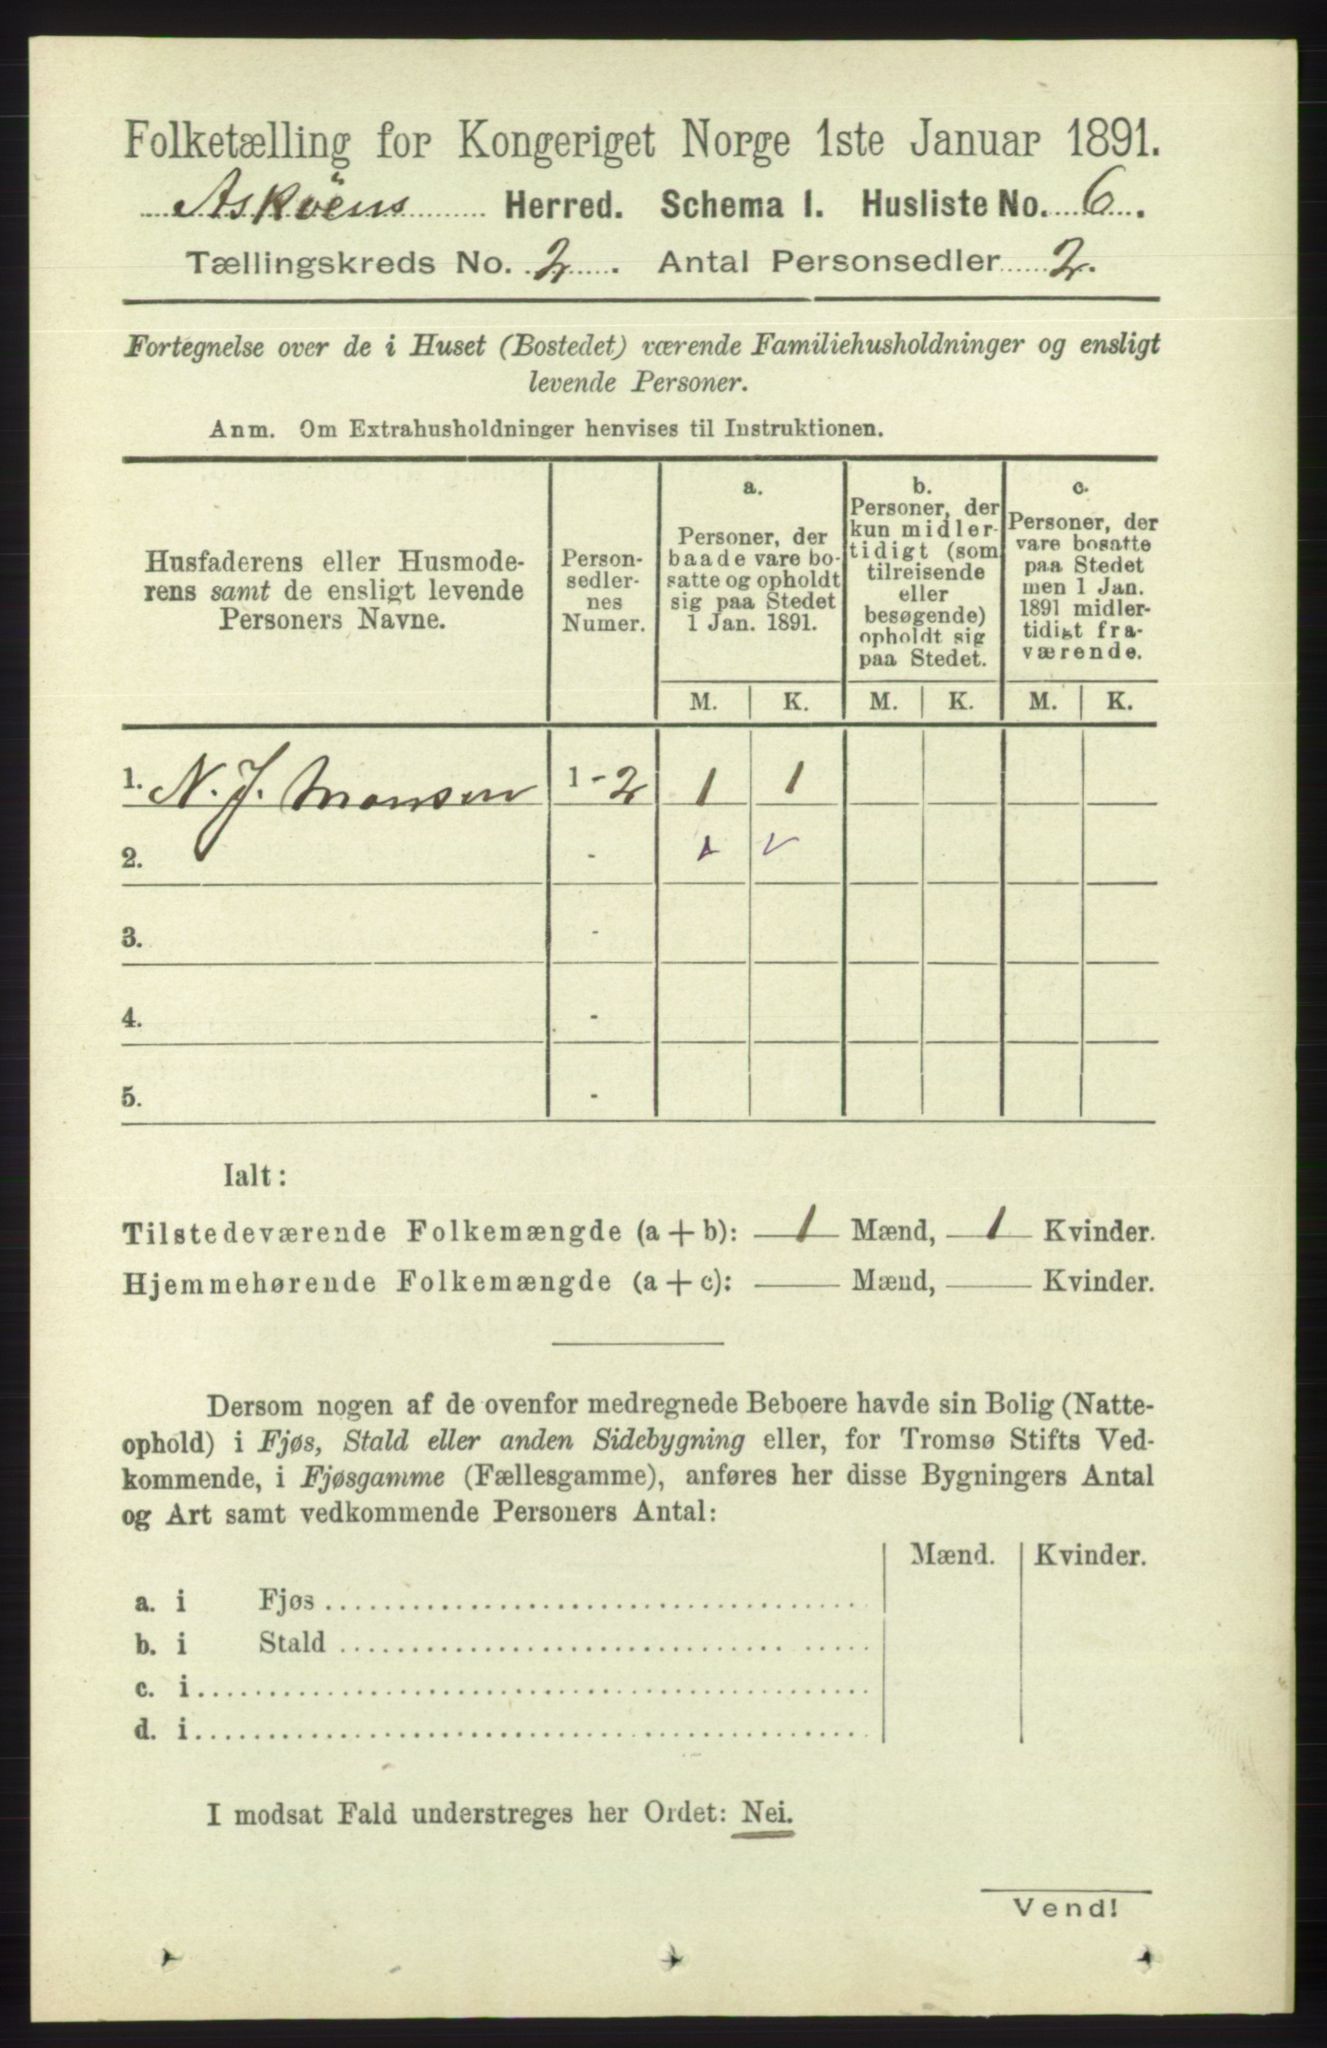 Folketælling for Kongeriget Norge 1ste Januar 1891.
Askøens Herred. Schema 1. Husliste No. 6.
Tællingskreds No. 2. Antal Personsedler 2.
Fortegnelse over de i Huset (Bostedet) værende Familiehusholdninger og ensligt
levende Personer.
Anm. Om Extrahusholdninger henvises til Instruktionen.
Husfaderens eller Husmode-
rens samt de ensligt levende
Personers Navne.
Person-
sedler-
nes
Numer.
a.
Personer, der
baade vare bo-
satte og opholdt
sig paa Stedet
1 Jan. 1891.
b.
Personer, der
kun midler-
tidigt (som
tilreisende
eller
besøgende)
opholdt sig
paa Stedet.
c.
Personer, der
vare bosatte
paa Stedet
men 1 Jan.
1891 midler-
tidigt fra-
værende.
M. K. M. K. M. K.
1. N. J. Monsen 1 - 2 1 1
2. -
3. -
4. -
5. -
Ialt:
Tilstedeværende Folkemængde (a + b): 1 Mænd, 1 Kvinder.
Hjemmehørende Folkemængde (a + c): Mænd, Kvinder.
Dersom nogen af de ovenfor medregnede Beboere havde sin Bolig (Natte-
ophold) i Fjøs, Stald eller anden Sidebygning eller, for Tromsø Stifts Ved-
kommende, i Fjøsgamme (Fællesgamme), anføres her disse Bygningers Antal
og Art samt vedkommende Personers Antal:
Mænd. Kvinder.
a. i Fjøs
b. i Stald
c. i
d. i
I modsat Fald understreges her Ordet: Nei.
Vend!